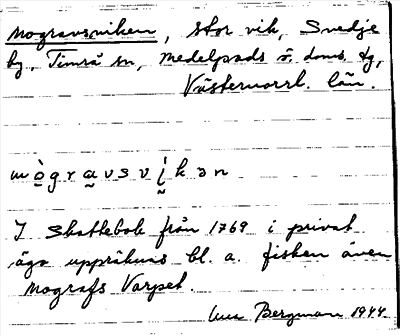 Mogravsviken, stor vik, Svedje
by, Timrå sn, Medelpads ö. doms. tg,
Västernorrl. län.
mògravsvíkən
I Skattebok från 1769 i privat
ägo uppräknas bl. a. fisken även
Mografs Varpet.
Bergman 1944